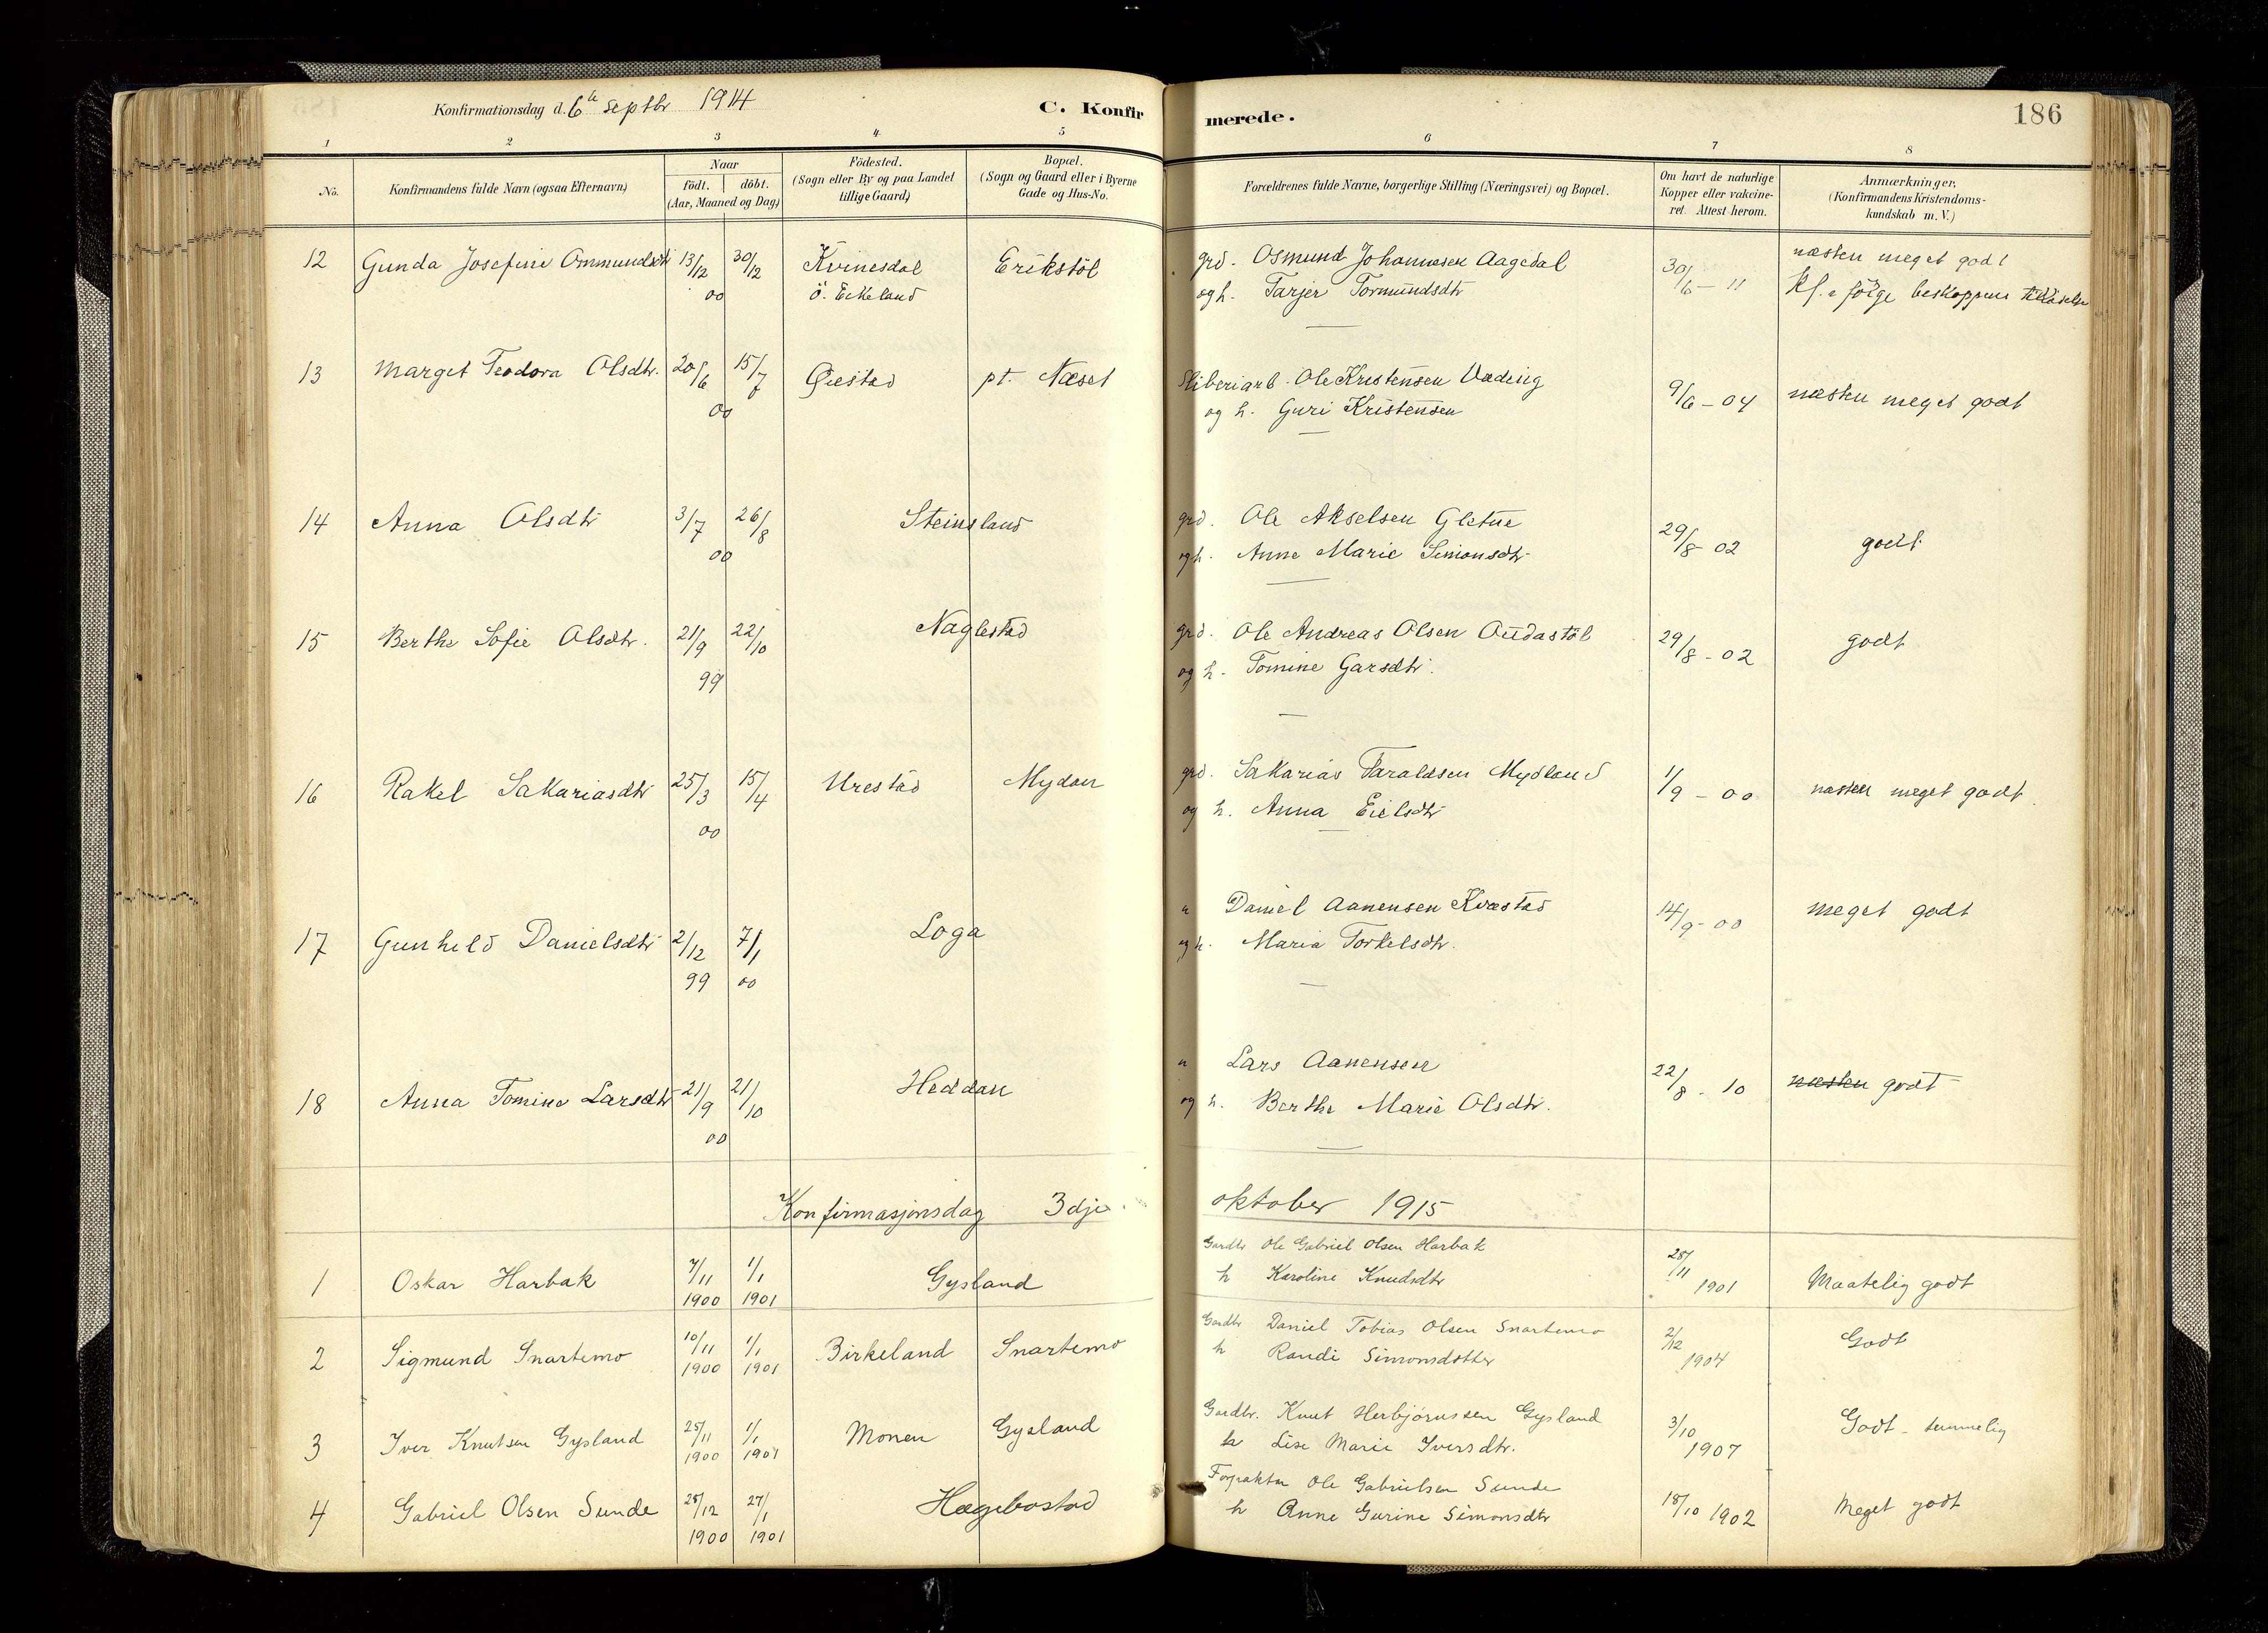 Konfirmationsdag d. 6te septbr 1914
C. Konfirmerede.
186
1 2 3 4 5 6 7 8
No.
Konfirmandens fulde Navn (ogsaa Efternavn)
Naar
født. døbt.
(Aar, Maaned og Dag)
Fødested.
(Sogn eller By og paa Landet
tillige Gaard)
Bopæl.
(Sogn og Gaard eller i Byerne
Gade og Hus-No.
Forældrenes fulde Navne, borgerlige Stilling (Næringsvei) og Bopæl.
Om havt de naturlige
Kopper eller vakcine-
ret. Attest herom.
Anmærkninger.
(Konfirmandens Kristendoms-
kundskab m. V.)
12 Gunda Josefine Ommundsdtr 13/12 30/12 Kvinesdal Erikstöl grd. Osmund Johannesen Aagedal 30/6 - 11 næsten meget godt
00 ö. Eikeland og h. Tarjer Tormundsdtr Kf. efölge beskoppens tilladelse
13 Marget Teodora Olsdtr. 20/6 15/7 Øiestad pt. Næset Sliberiarb. Ole Kristensen Vading 9/6 - 04 næsten meget godt
00 og h. Guri Kristensen
14 Anna Olsdtr 3/7 26/8 Steinsland grd. Ole Akselsen Gletne 29/8 - 02 godt
00 og h. Anne Marie Simonsdtr
15 Berthe Sofie Olsdtr. 21/9 22/10 Naglestad grd. Ole Andreas Olsen Oudastöl 29/8 - 02 godt
99 og h. Tomine Garsdtr.
16 Rakel Sakariasdtr 25/3 15/4 Urestad Mydlan grd. Sakarias Taraldsen Mydland 1/9 - 00 næsten meget godt.
00 og h. Anna Eielsdtr
17 Gunhild Danielsdtr 2/12 7/1 Loga " Daniel Aanensen Kvæstad 14/9 - 00 meget godt
99 00 og h. Maria Torkelsdtr.
18 Anna Tomine Larsdtr 21/9 21/10 Heddan " Lars Aanensen 22/8 - 10 næsten godt
00 og h. Berthe Marie Olsdtr.
Konfirmasjonsdag 3dje oktober 1915
1 Oskar Harbak 7/11 1900 1/1 1901 Gysland Gardbr Ole Gabriel Olsen Harbak 28/11 1901 Maatelig godt
h Karoline Knudsdtr
2 Sigmund Snartemo 10/11 1900 1/1 1901 Birkeland Snartemo Gardbr Daniel Tobias Olsen Snartemo 2/12 1904 Godt
h Randi Simonsdotter
3 Iver Knutsen Gysland 25/11 1900 1/1 1901 Monen Gysland Gardbr. Knut Herbjørnssen Gysland 3/10 1907 Godt - temmelig
h Lise Marie Iversdtr.
4 Gabriel Olsen Sunde 25/12 1900 27/1 1901 Hægebostad Forpakter Ole Gabrielsen Sunde 18/10 1902 Meget godt
h Anne Gurine Simonsdtr